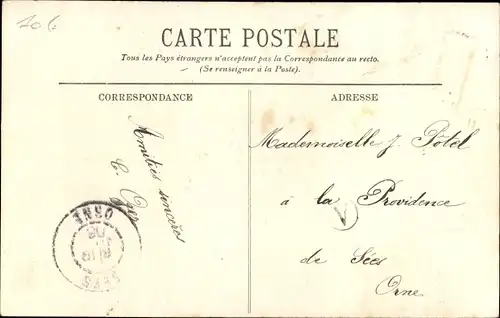 CARTE POSTALE
Tous les Pays étrangers n'acceptent pas la Correspondance au recto.
(Se renseigner à la Poste).
CORRESPONDANCE
ADRESSE
Amitiés sincères
Mademoiselle J. Potel
à la Providence
de Sées
Orne
SEES
ORNE